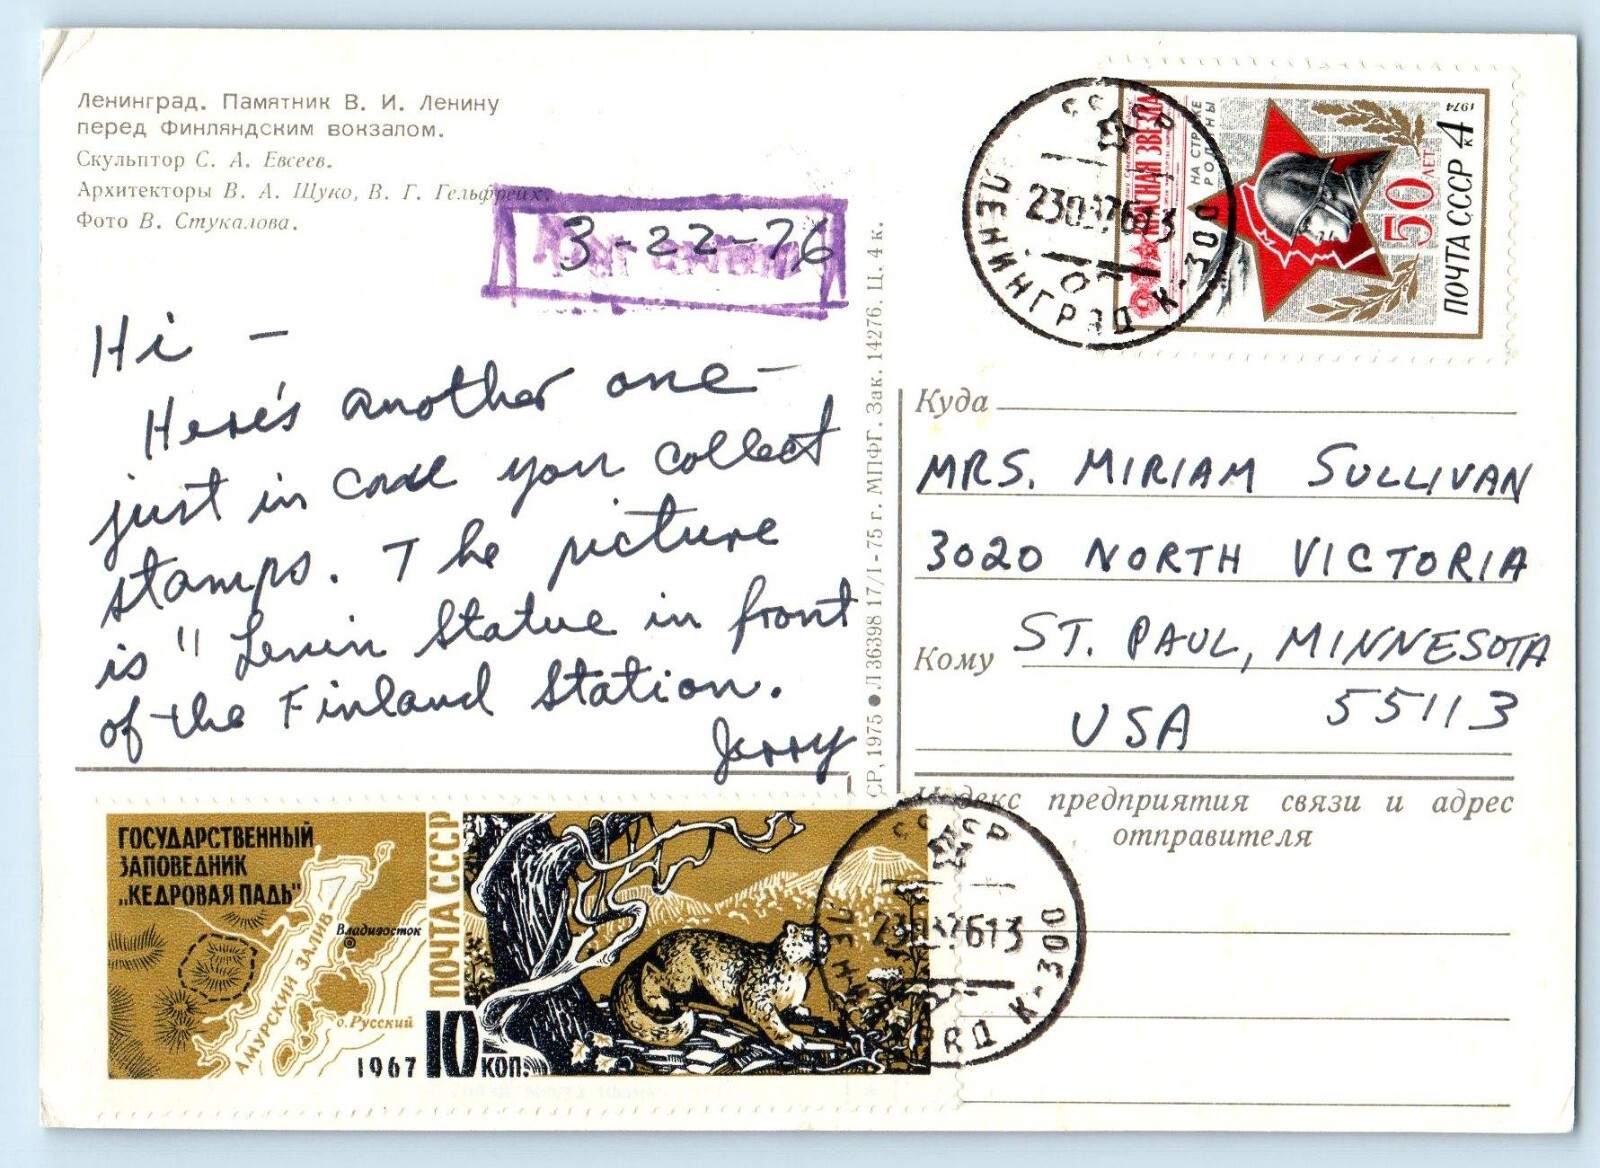 Ленинград. Памятник В. И. Ленину
перед Финляндским вокзалом.
Скульптор С. А. Евсеев.
Архитекторы В. А. Щуко, В. Г. Гельфрейх.
Фото В. Стукалова.
3-22-76
Hi -
Here's another one -
just in case you collect
stamps. The picture
is "Lenin Statue in front
of the Finland Station.
Jerry
СР, 1975 ● Л 36398 17/I-75 г. МПФГ. Зак. 14276. Ц. 4 к.
СССР
ЛЕНИНГРАД К-300
КРАСНАЯ ЗВЕЗДА
НА СТРАЖЕ
РОДИНЫ
50 ЛЕТ
ПОЧТА СССР 4 к
1974
Куда
MRS. MIRIAM SULLIVAN
3020 NORTH VICTORIA
Кому ST. PAUL, MINNESOTA
USA 55113
Индекс предприятия связи и адрес
отправителя
ГОСУДАРСТВЕННЫЙ
ЗАПОВЕДНИК
„КЕДРОВАЯ ПАДЬ"
Владивосток
АМУРСКИЙ ЗАЛИВ
о. Русский
1967
ПОЧТА СССР
10 КОП.
СССР
К-300